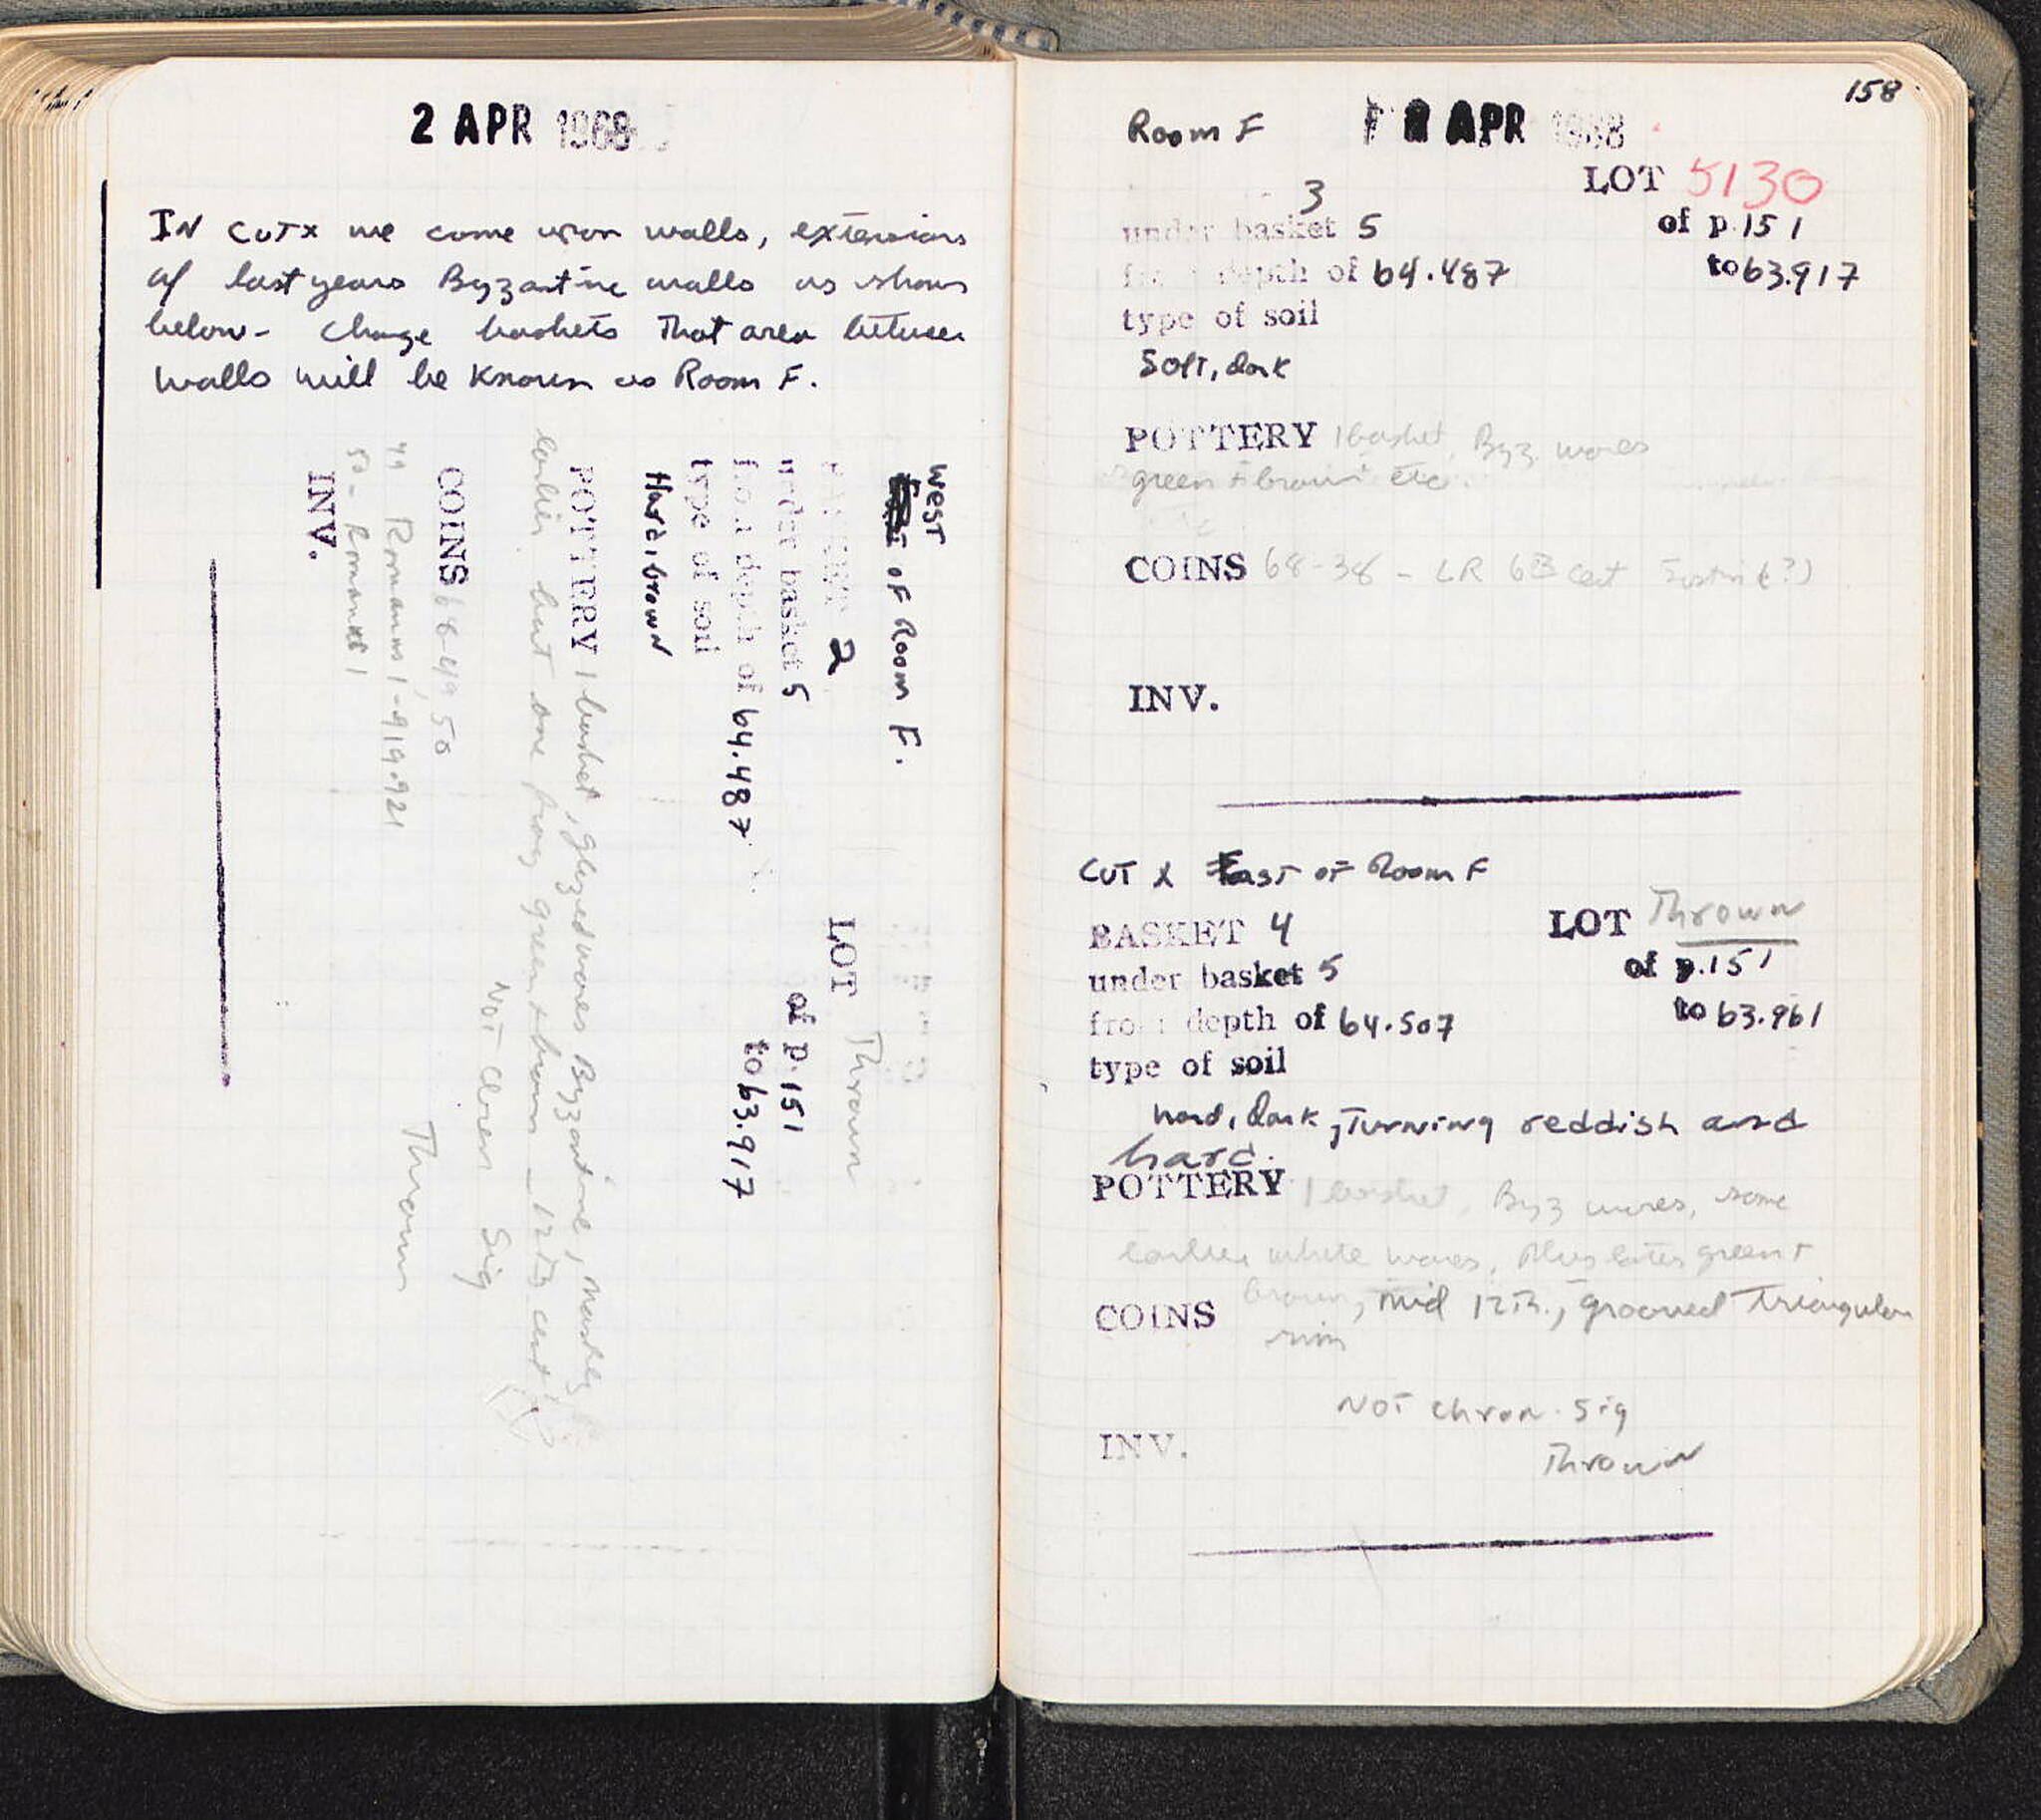 2 APR 1968
IN CUT X we come upon walls, extensions
of last years Byzantine walls as shown
below - change baskets That area between
walls will be known as Room F.
West
of Room F.
BASKET 2
LOT Thrown
under basket 5
of p. 151
from depth of 64.487
to 63.917
type of soil
Hard, brown
POTTERY 1 basket, glazed wares Byzantine, mostly
earlier but one frag green + brown - 12th cent
Not chron Sig
COINS 68-49, 50
Thrown
49 Romanus I - 919-921
50 - Romanus I
INV.
158
Room F
2 APR 1968
LOT 5130
3
under basket 5
of p. 151
from depth of 64.487
to 63.917
type of soil
Soft, dark
POTTERY 1 basket, Byz. wares
green + brown etc.
COINS 68-38 - LR 6th cent Justin (?)
INV.
CUT X East of Room F
BASKET 4
LOT Thrown
under basket 5
of p. 151
from depth of 64.507
to 63.961
type of soil
hard, dark, Turning reddish and
hard.
POTTERY 1 basket, Byz wares, some
earlier white wares, plus later green +
brown, mid 12th., grooved Triangular
COINS
rim
NOT chron. Sig
INV.
Thrown